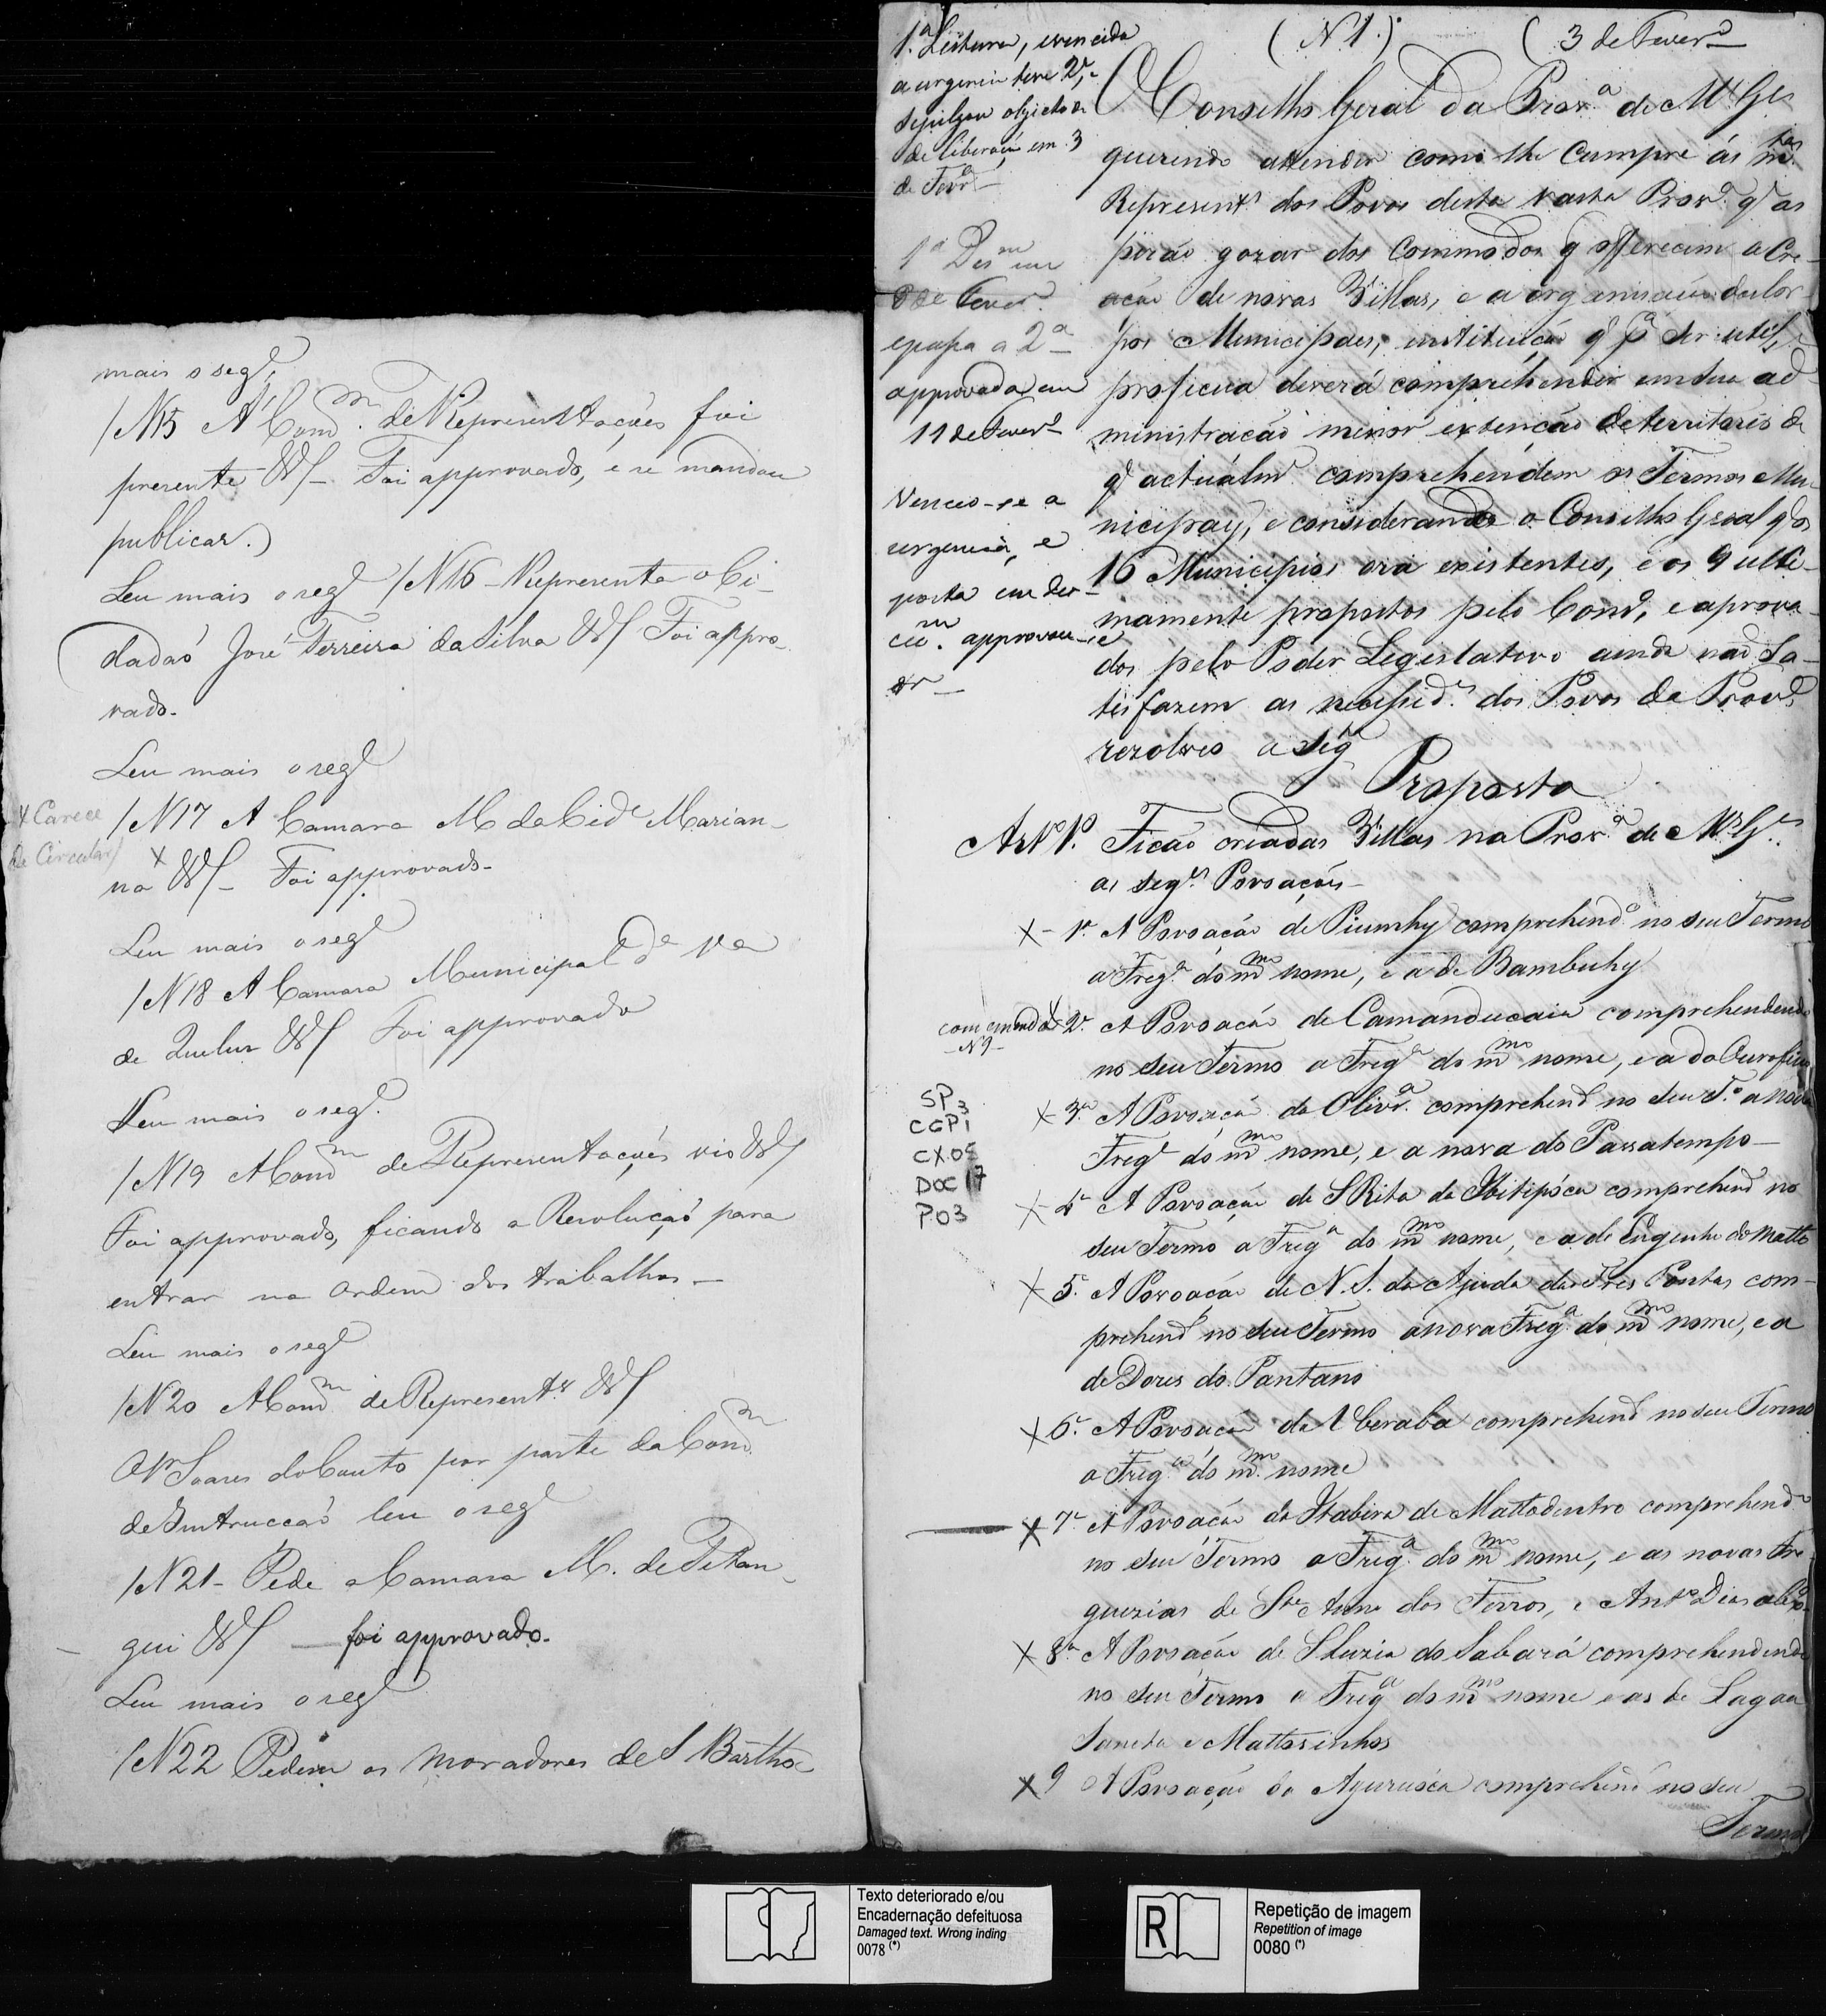 mais o segᵉ
/N15 A' Comᵐ. de Representações foi
presente &ª – Foi approvado, e se mandou
publicar.)
Leu mais o segᵉ /N16 – Representa o Ci-
dadaõ José Ferreira da Silva &ª Foi appro-
vado.
Leu mais o segᵉ
X Carece
de Circular/
/N17 A Camara M da Cidᵉ Marian-
na X &ª – Foi approvado-
Leu mais o segᵉ
/N18 A Camara Municipal da Vª
de Queluz &ª Foi approvado
Leu mais o segᵉ.
/N19 A Comᵐ de Representações vio &ª
Foi approvado, ficando a Resoluçaõ para
entrar na ordem dos trabalhos –
Leu mais o segᵉ
/N20 A Comᵐ de Represent.ˢ &ª
O Sʳ Soares do Couto por parte da Comᵐ
de Instrucçaõ leu o segᵉ
/N21 – Pede a Camara M. de Pitan-
gui &ª — foi approvado.
Leu mais o segᵉ
/N22 Pedem os moradores de S Bartho-
(N 1.) ( 3 de Feverᵒ
1.ª Leitura, e vencida
a urgencia teve 2ª, e
se julgou objecto de
deliberaçaõ em 3
de Fevrᵒ –
1ª Disᵐ em
8 de Feverᵒ.
e passa a 2ª
approvada em
11 de Feverᵒ
Venceo-se a
urgencia, e
posta em dis-
cuᵐ. approvou-se
O Conselho Geral da Provª de Mˢ Gᵉˢ
querendo attender como lhe cumpre ás mᵗᵃˢ
Represent.ˢ dos Povos desta vasta Provª. qᵉ as
piraõ gozar dos Commodos q offerecem a Cre-
açaõ de novas Villas, e a organisaçaõ de Cor-
pos Municipaes, instituiçaõ qᵉ pª ser util, e
proficua deverá comprehender em sua ad-
ministraçaõ menor extençaõ de territorio do
qᵉ actualmᵉ comprehendem os Termos Mu-
nicipaes, e considerando o Conselho Geral qᵉ os
16 Municipios ora existentes, e os 9 ulti-
mamente propostos pelo Consᵒ, e aprova-
dos pelo Poder Legislativo ainda naõ Sa-
tisfazem as necessidᵉˢ dos Povos da Provª
rezolveo a segᵉ
Proposta
Artº 1º. Ficaõ creadas Villas na Provª de Mˢ Gˢ.
as segᵉˢ Povoações –
X - 1ª. A Povoaçaõ de Piumhy comprehendᵒ no seu Termo
a Fregª do mᵐᵒ nome, e a de Bambuhy
com emenda X 2ª. A Povoaçaõ de Camanducaia comprehendendo
– N 9 –
no seu Termo a Fregª do mᵐᵒ nome, e a do Ourofino
X 3ª A Povoaçaõ da Olivrª comprehendᵒ no seu Tº a nova
Fregª do mᵐᵒ nome, e a nova do Passatempo –
X - 4ª A Povoaçaõ de S Rita da Ibitipóca comprehendᵒ no
seu Termo a Fregª do mᵐᵒ nome, e a do Engenho do Matto
X 5ª. A Povoaçaõ de N. S. da Ajuda das Tres Pontas com-
prehendᵒ no seu Termo a nova Fregª do mᵐᵒ nome, e a
de Dores do Pantano
X 6ª. A Povoaçaõ da Uberaba comprehendᵒ no seu Termo
a Fregª do mᵐᵒ nome
X 7ª A Povoaçaõ da Itabira de Mattodentro comprehendᵒ
no seu Termo a Fregª do mᵐᵒ nome, e as novas Fre-
guezias de Stª Anna dos Ferros, e Antº Dias abxº
X 8ª. A Povoaçaõ de S Luzia do Sabará comprehendendo
no seu Termo a Fregª do mᵐᵒ nome e as de Lagoa
Sancta e Mattosinhos
X 9 A Povoaçaõ da Ayuruóca comprehendᵒ no seu
Termo
SP
CGP 3
1
CX.05
DOC 17
P.03
Texto deteriorado e/ou
Encadernação defeituosa
Damaged text. Wrong inding
0078 (*)
R
Repetição de imagem
Repetition of image
0080 (*)